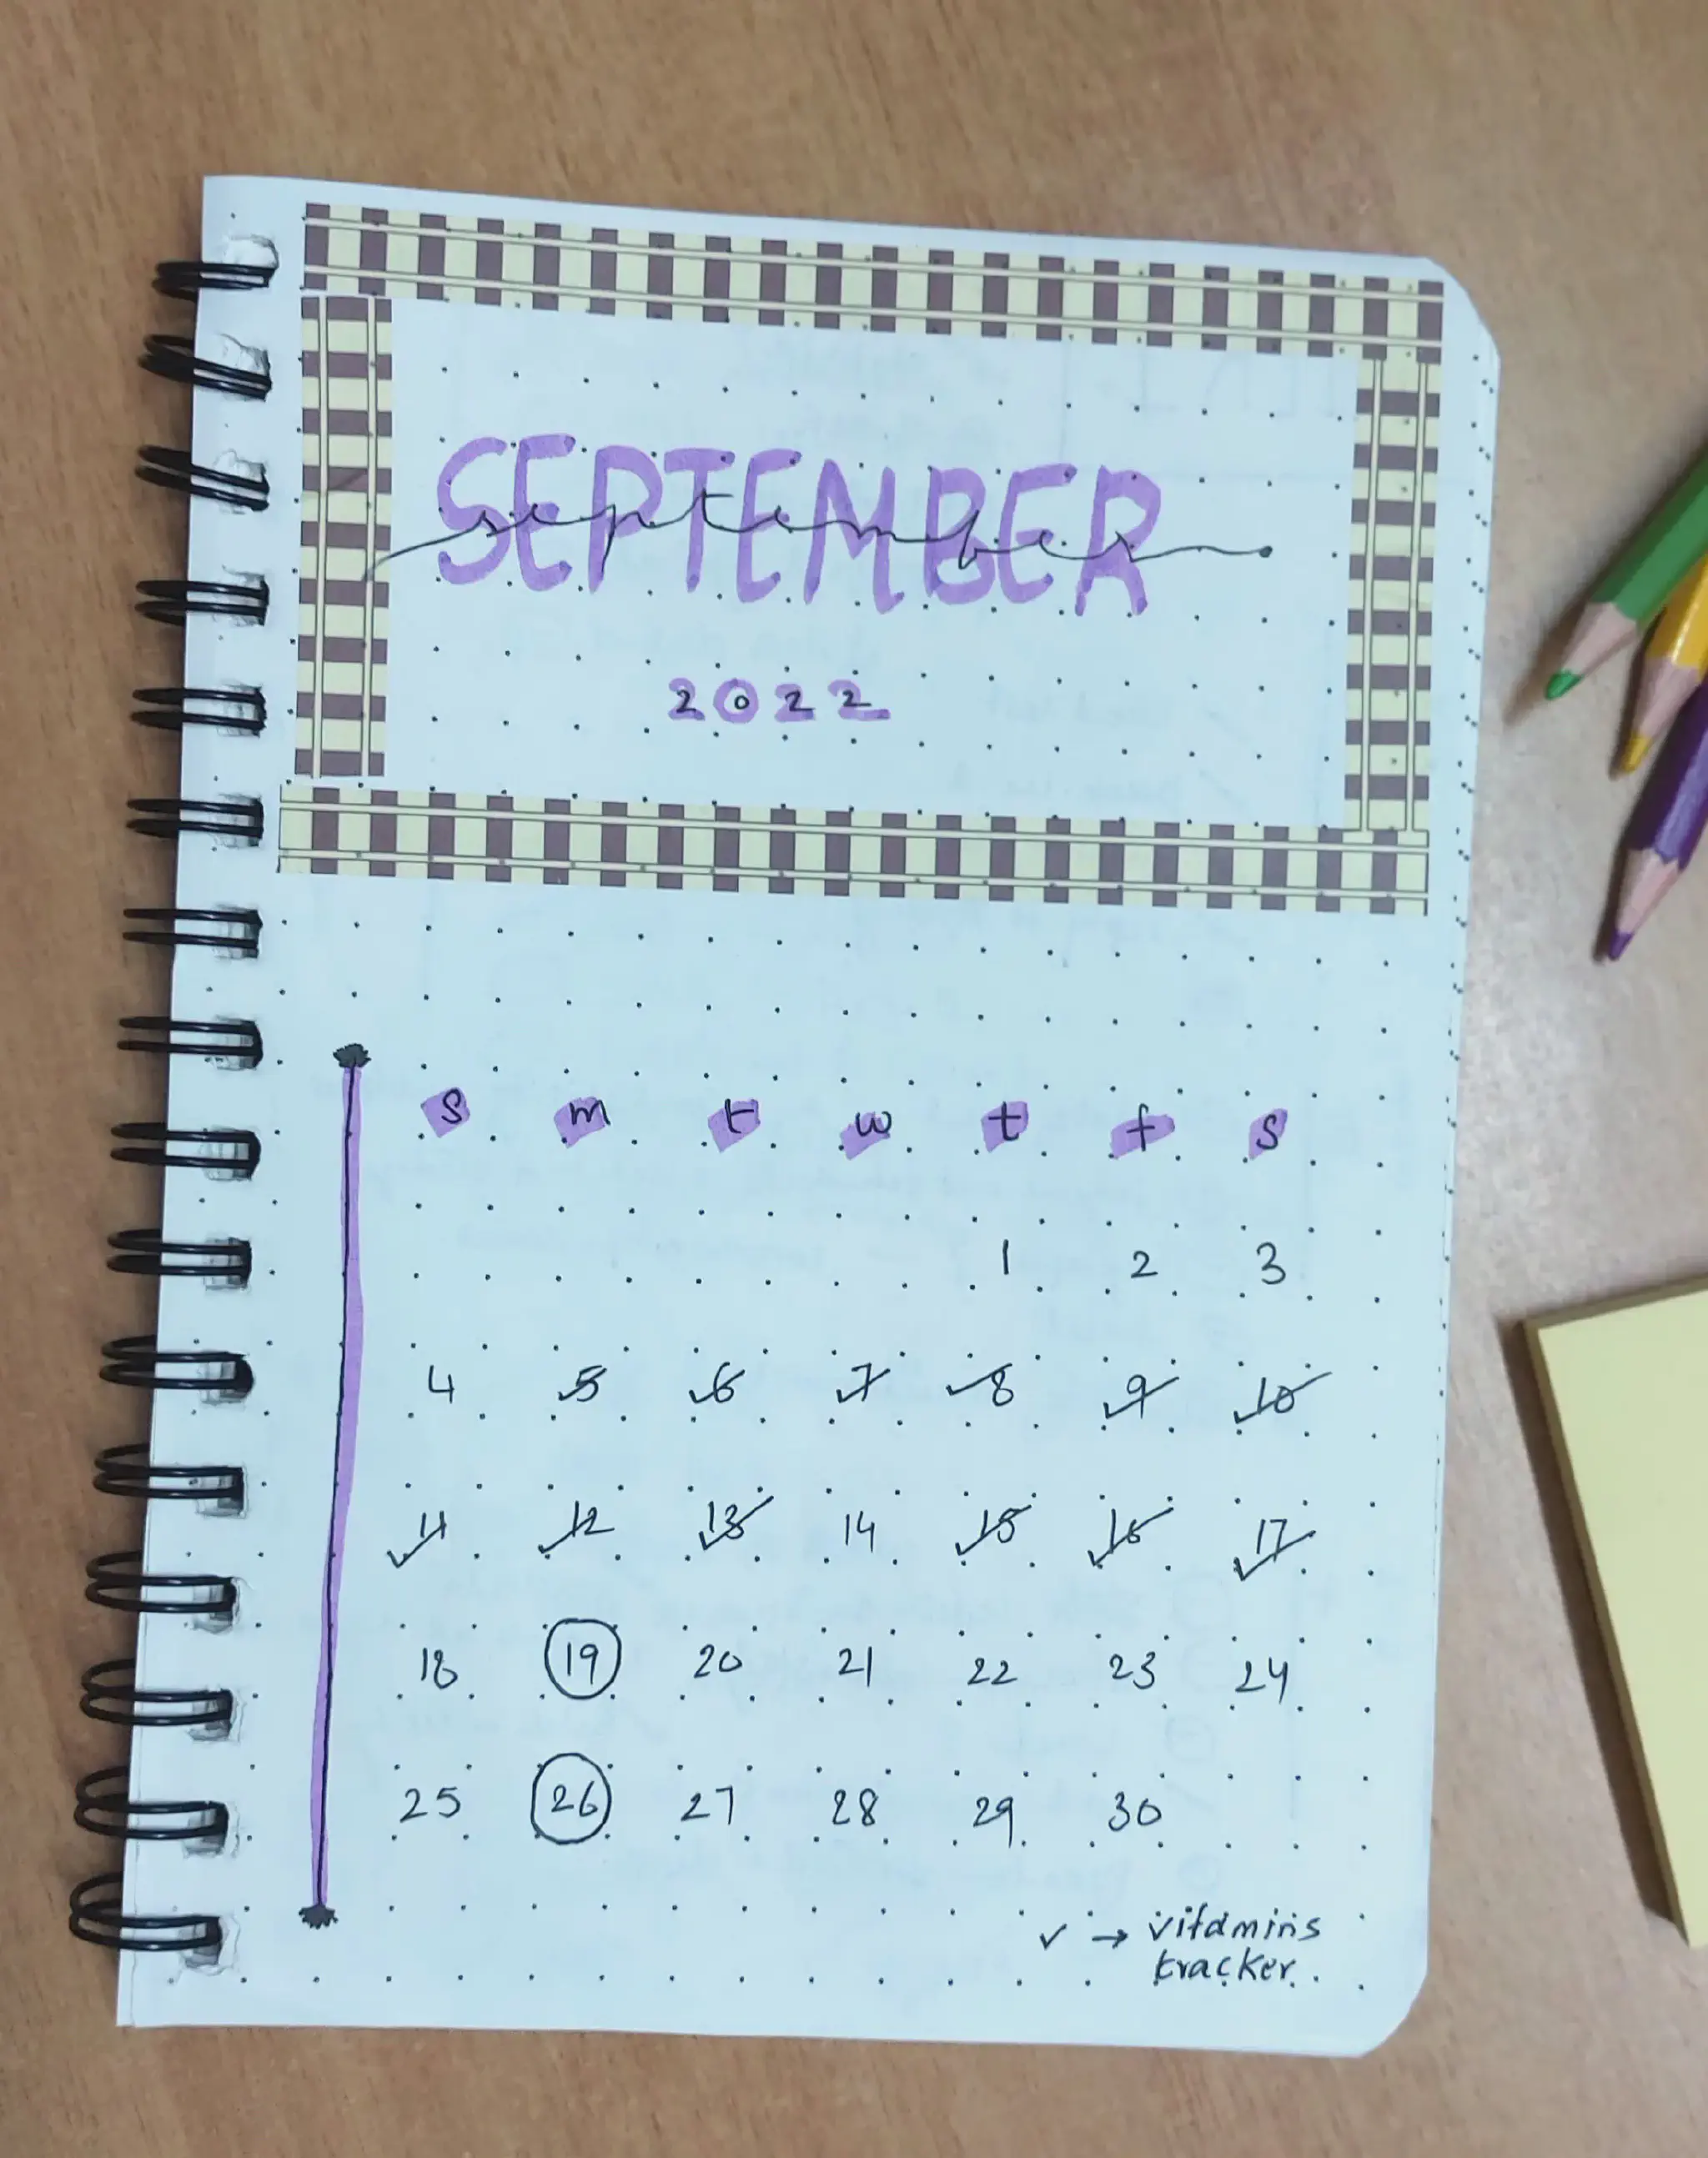 SEPTEMBER
september
2022
s m t w t f s
1 2 3
4 5 6 7 8 9 10
11 12 13 14 15 16 17
18 19 20 21 22 23 24
25 26 27 28 29 30
✓ → vitamins
tracker.